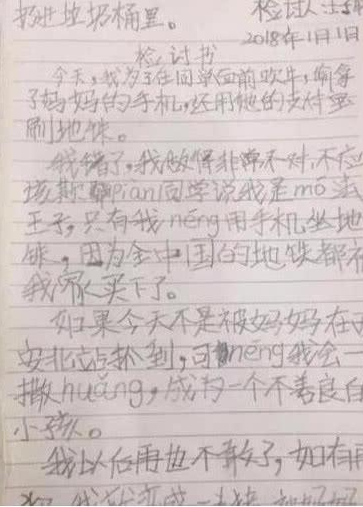 扔进垃圾桶里。
检讨人:
2018年1月1日
检讨书
今天,我为了在同学面前吹牛,偷拿
了妈妈的手机,还用她的支付宝
刷地铁。
我错了,我做得非常不对,不应
该欺pian同学说我是mō法
王子,只有我néng用手机坐地
铁,因为全中国的地铁都被
我家买下了。
如果今天不是被妈妈在
安北站抓到,可néng我会一
撒huǎng,成为一个不善良的
小孩。
我以后再也不敢了,如有再